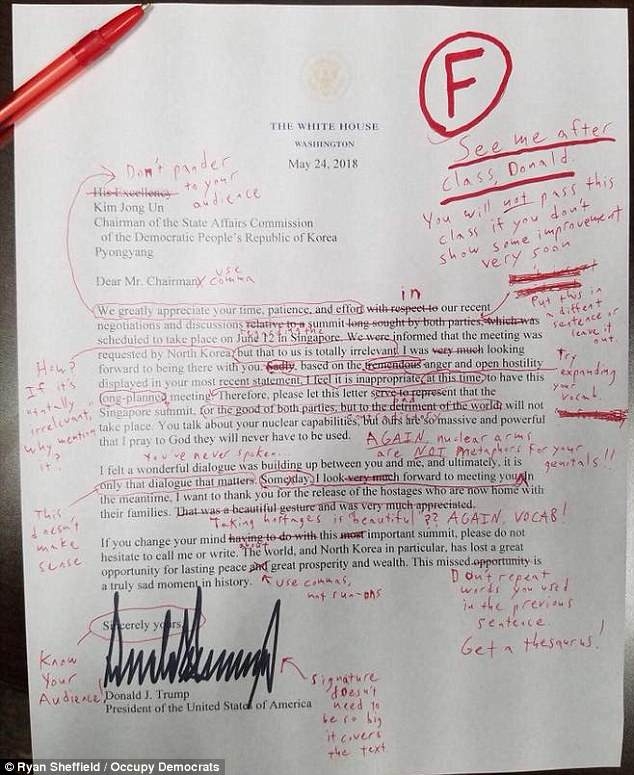 F
See me after
class, Donald.
You will not pass this
class if you don't
show some improvement
very soon
THE WHITE HOUSE
WASHINGTON
May 24, 2018
Don't pander
to your
audience
His Excellency
Kim Jong Un
Chairman of the State Affairs Commission
of the Democratic People's Republic of Korea
Pyongyang
Dear Mr. Chairman
use
comma
in
We greatly appreciate your time, patience, and effort with respect to our recent
negotiations and discussions relative to a summit long sought by both parties, which was
scheduled to take place on June 12 in Singapore. We were informed that the meeting was
requested by North Korea, but that to us is totally irrelevant. I was very much looking
forward to being there with you. Sadly, based on the tremendous anger and open hostility
displayed in your most recent statement, I feel it is inappropriate, at this time, to have this
long-planned meeting. Therefore, please let this letter serve to represent that the
Singapore summit, for the good of both parties, but to the detriment of the world, will not
take place. You talk about your nuclear capabilities, but ours are so massive and powerful
that I pray to God they will never have to be used.
Put this in
a different
sentence or
leave it
out.
Try
expanding
your
vocab.
How?
If it's
totally
irrelevant,
why mention
it?
AGAIN, nuclear arms
are NOT metaphors for your
genitals!!
You've never spoken...
I felt a wonderful dialogue was building up between you and me, and ultimately, it is
only that dialogue that matters. Some day, I look very much forward to meeting you. In
the meantime, I want to thank you for the release of the hostages who are now home with
their families. That was a beautiful gesture and was very much appreciated.
This
doesn't
make
sense
Taking hostages is beautiful?? AGAIN, VOCAB!
If you change your mind having to do with this most important summit, please do not
hesitate to call me or write. The world, and North Korea in particular, has lost a great
opportunity for lasting peace and great prosperity and wealth. This missed opportunity is
a truly sad moment in history.
about
use commas,
not run-ons
Don't repeat
words you used
in the previous
sentence.
Get a thesaurus!
Sincerely yours,
Know
Your
Audience!
Donald J. Trump
President of the United States of America
Signature
doesn't
need to
be so big
it covers
the text
© Ryan Sheffield / Occupy Democrats